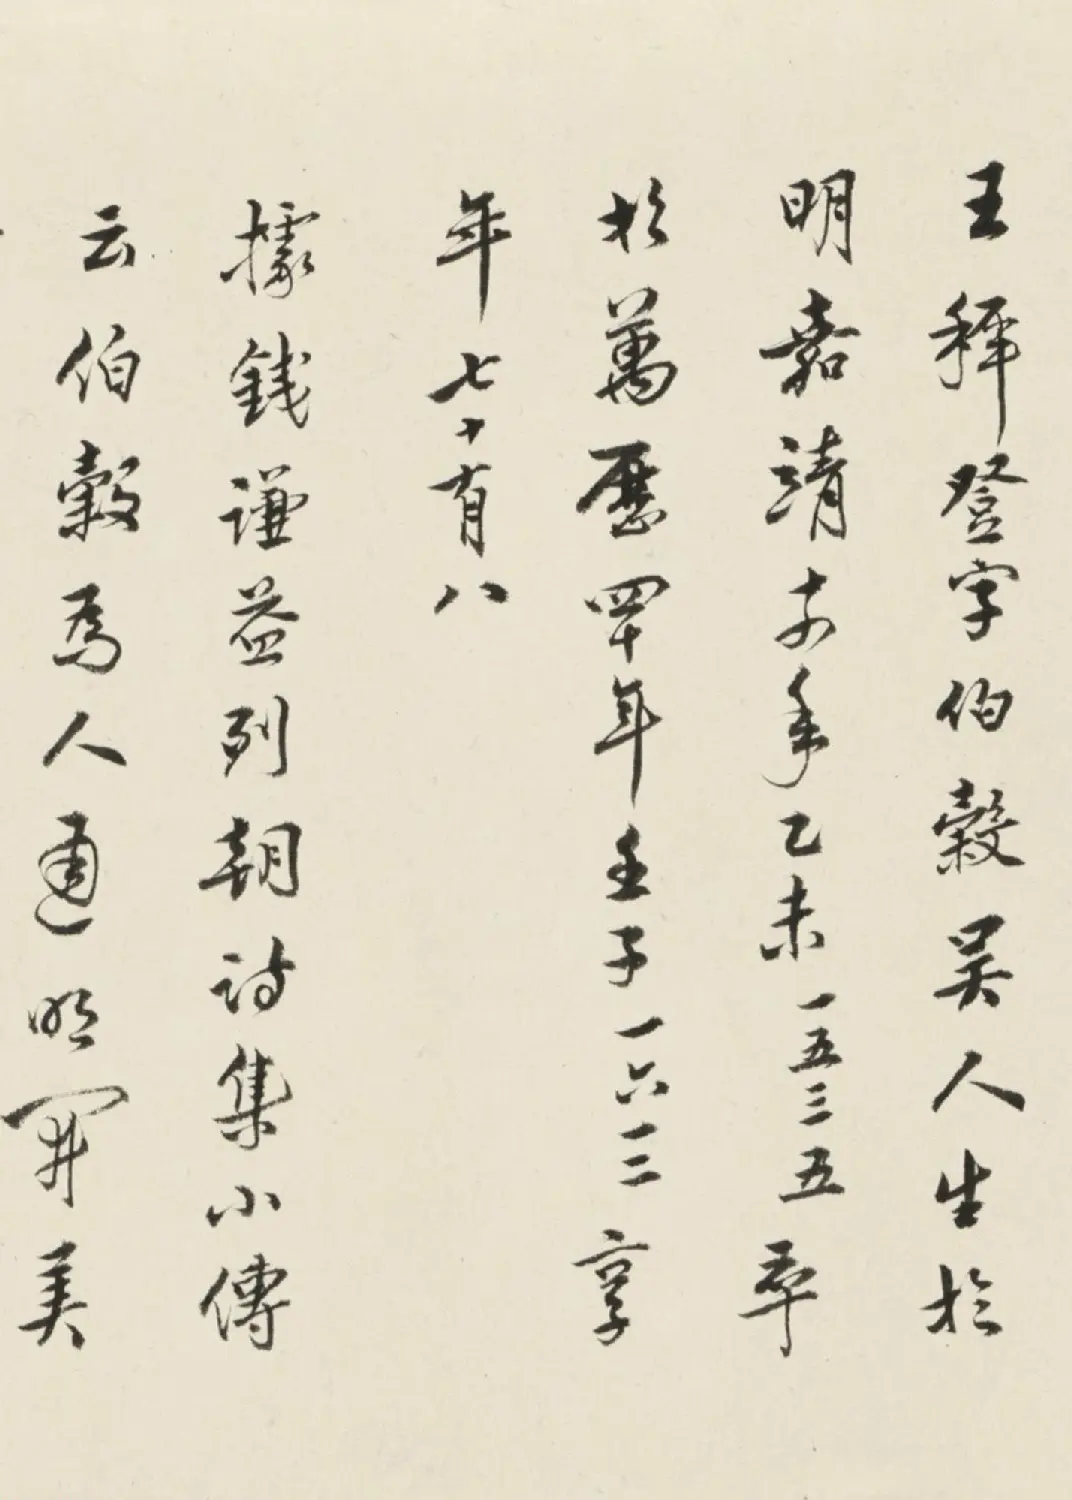 王穉登字伯穀吳人生於
明嘉靖十四年乙未一五三五卒
於萬歷四十年壬子一六一二享
年七十有八
據錢謙益列朝詩集小傳
云伯穀為人通明開美